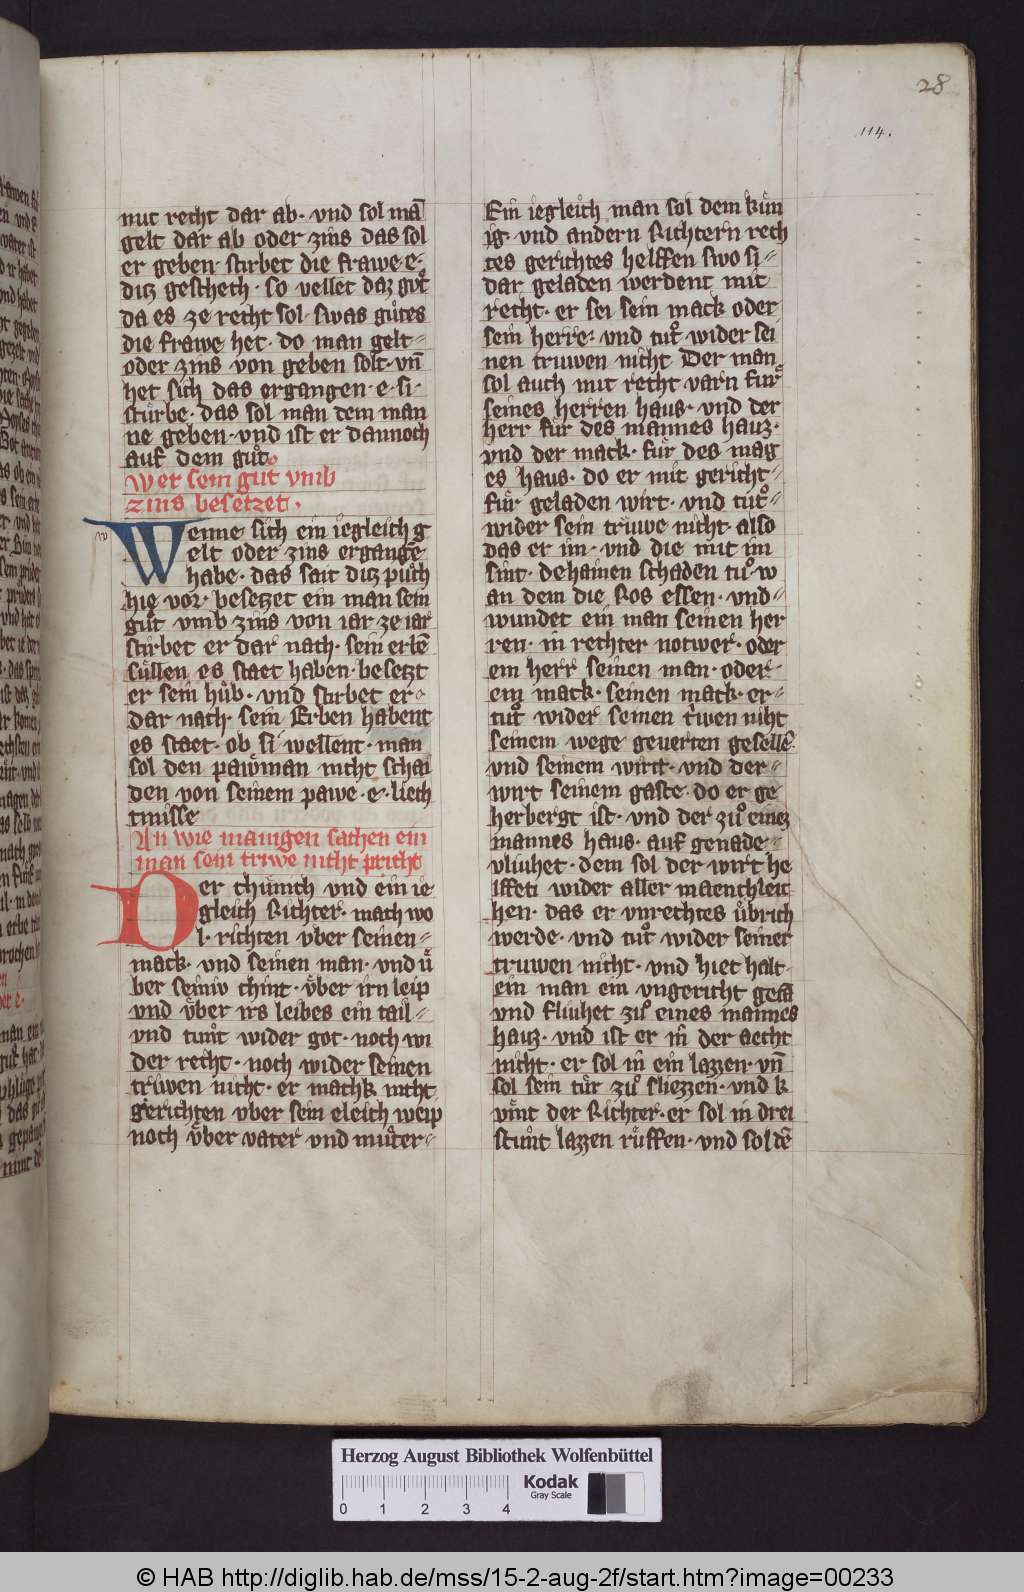 28
114.
mit recht dar ab · vnd sol mā
gelt dar ab oder zins das sol
er geben · stirbet die frawe · e ·
ditz geschech · so vellet daz gůt
da es ze recht sol · swas gůtes
die frawe het · do man gelt-
oder zins von geben solt · vn̄
het sich das ergangen · e · si ·
sturbe · das sol man dem man
ne geben · vnd ist er dannoch
auf dem gůt
Wer sein gut vmb
zins besetzet ·
w
Wenne sich ein iegleich g
elt oder zins ergangē
habe · das sait ditz půch
hie vor · besetzet ein man sein
gůt vmb zins von iar ze iar
stirbet er dar nach · sein erbē
sullen es staet haben · besetzt
er sein hůb · vnd stirbet er ·
dar nach · sein Erben habent
es staet · ob si wellent · man
sol den pawman nicht schai
den von seinem pawe · e · liech
tmisse
An wie manigen sachen ein
man sein triwe nicht pricht
Der chünich vnd ein ie
gleich Richter · mach wo
l · richten vber seinen-
mack · vnd seinen man · vnd ü
ber seiniv chint · über irn leip
vnd über irs leibes ein tail-
vnd tůnt wider got · noch wi
der recht · noch wider seinen
triwen nicht · er machk nicht
gerichten vber sein eleich weip
noch über vater vnd můter-
Ein iegleich man sol dem kün
ig · vnd andern Richtern rech
tes gerichtes helffen swo si-
dar geladen werdent mit
recht · er sei sein mack oder
sein herre · vnd tůt wider sei
nen truwen nicht Der man
sol auch mit recht varn für
seines herren haus · vnd der
herr für des mannes hauz ·
vnd der mack · für des mag
es haus · do er mit gericht-
für geladen wirt · vnd tůt-
wider sein truwe nicht · also
das er im · vnd die mit im
sint · dehainen schaden tů · w
an dem die Ros essen · vnd-
wundet ein man seinen her
ren · in rechter notwer · oder
ein herr seinen man · oder-
ein mack · seinen mack · er-
tůt wider seinen triwen niht
seinem wege geuerten gesellē ·
vnd seinem wirt · vnd der-
wirt seinem gaste · do er ge
herbergt ist · vnd der zů einez
mannes haus · auf genade-
vliuhet · dem sol der wirt he
lffen wider aller maenchleic
hen · das er vnrechtes übrich
werde · vnd tůt wider seiner
truwen nicht · vnd hiet halt
ein man ein vngericht getā
vnd fliuhet zů eines mannes
hauz · vnd ist er in der aecht
nicht · er sol in ein lazzen · vn̄
sol sein tür zů sliezzen · vnd k
vmt der Richter · er sol in drei
stůnt lazzen rüffen · vnd sol dē
Herzog August Bibliothek Wolfenbüttel
Kodak
Gray Scale
0 1 2 3 4
© HAB http://diglib.hab.de/mss/15-2-aug-2f/start.htm?image=00233